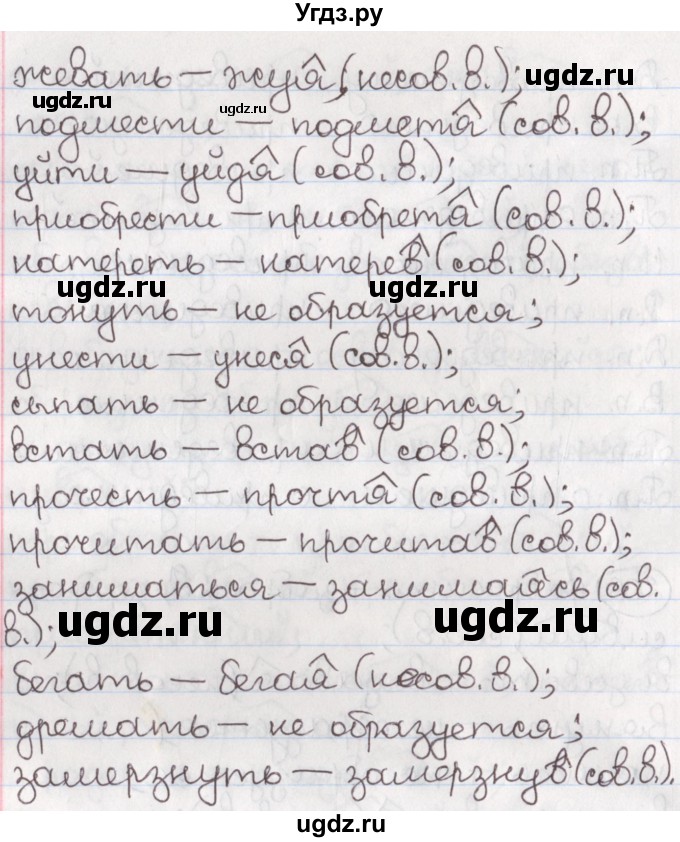 Угдз.ру
жевать — жуя (несов.в.);
ugdz.ru
ugdz.ru
ugdz.ru
подмести — подметя (сов.в.);
уйти — уйдя (сов.в.);
приобрести — приобретя (сов.в.);
натереть — натерев (сов.в.);
ugdz.ru
ugdz.ru
тонуть — не образуется;
унести — унеся (сов.в.);
сыпать — не образуется;
встать — встав (сов.в.);
прочесть — прочтя (сов.в.);
прочитать — прочитав (сов.в.);
заниматься — занимаясь (сов.
в.);
ugdz.ru
ugdz.ru
бегать — бегая (несов.в.);
дремать — не образуется;
замерзнуть — замерзнув (сов.в.).
ugdz.ru